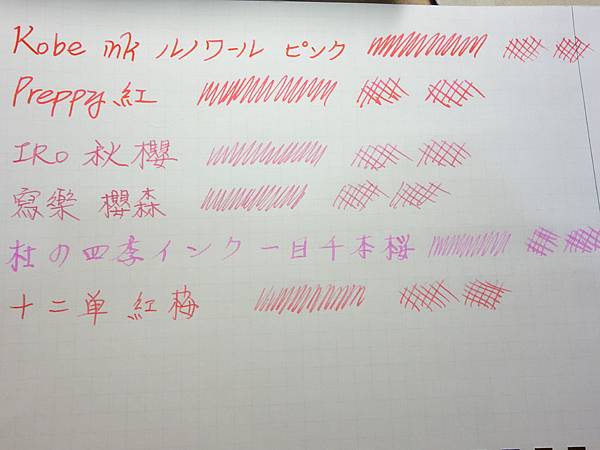 Kobe ink ルノワール ピンク
Preppy 紅
IRo 秋櫻
寫樂 櫻森
杜の四季インク一目千本桜
十二単 紅梅